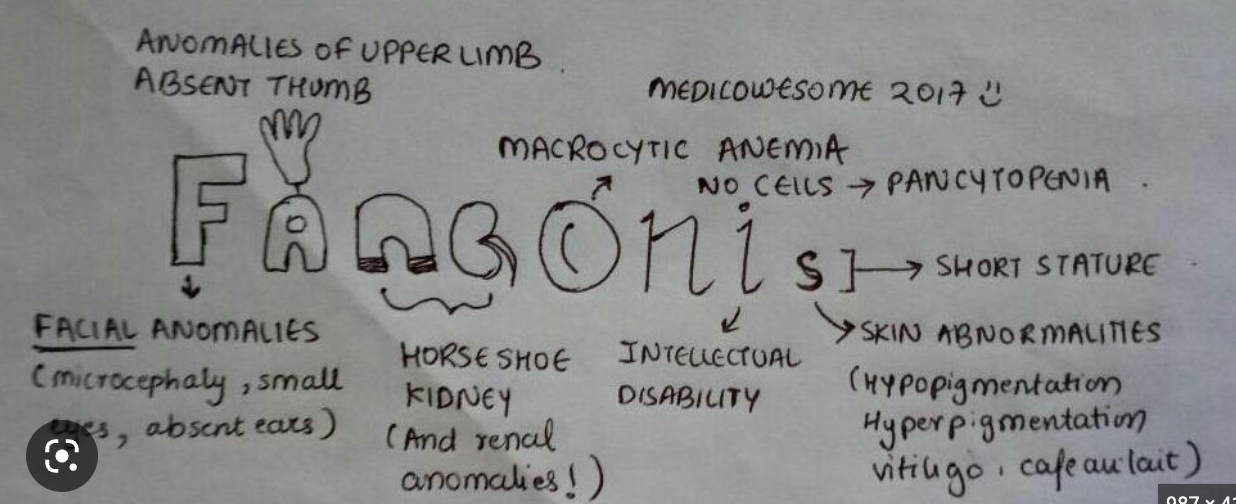 ANOMALIES OF UPPER LIMB
ABSENT THUMB
MEDICOWESOME 2017
MACROCYTIC ANEMIA
NO CELLS → PANCYTOPENIA
FANCONi
S ] → SHORT STATURE
FACIAL ANOMALIES
(microcephaly, small
eyes, absent ears)
HORSE SHOE
KIDNEY
(And renal
anomalies!)
INTELLECTUAL
DISABILITY
SKIN ABNORMALITIES
(Hypopigmentation
Hyperpigmentation
vitiligo, cafe au lait)